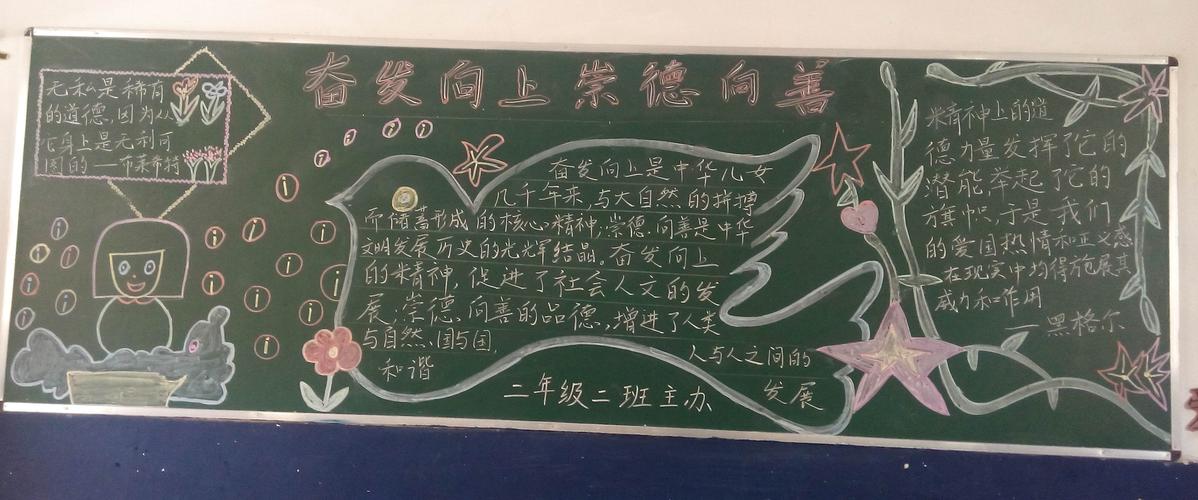 奋发向上崇德向善
无私是稀有
的道德,因为从
它身上是无利可
图的——布莱希特
奋发向上是中华儿女
几千年来,与大自然的拼搏
而储蓄形成的核心精神,崇德、向善是中华
文明发展历史的光辉结晶。奋发向上
的精神,促进了社会人文的发
展;崇德、向善的品德,增进了人类
与自然、国与国、
人与人之间的
和谐
发展
二年级二班主办
精神上的道
德力量发挥了它的
潜能,举起了它的
旗帜,于是我们
的爱国热情和正义感
在现实中均得施展其
威力和作用
——黑格尔